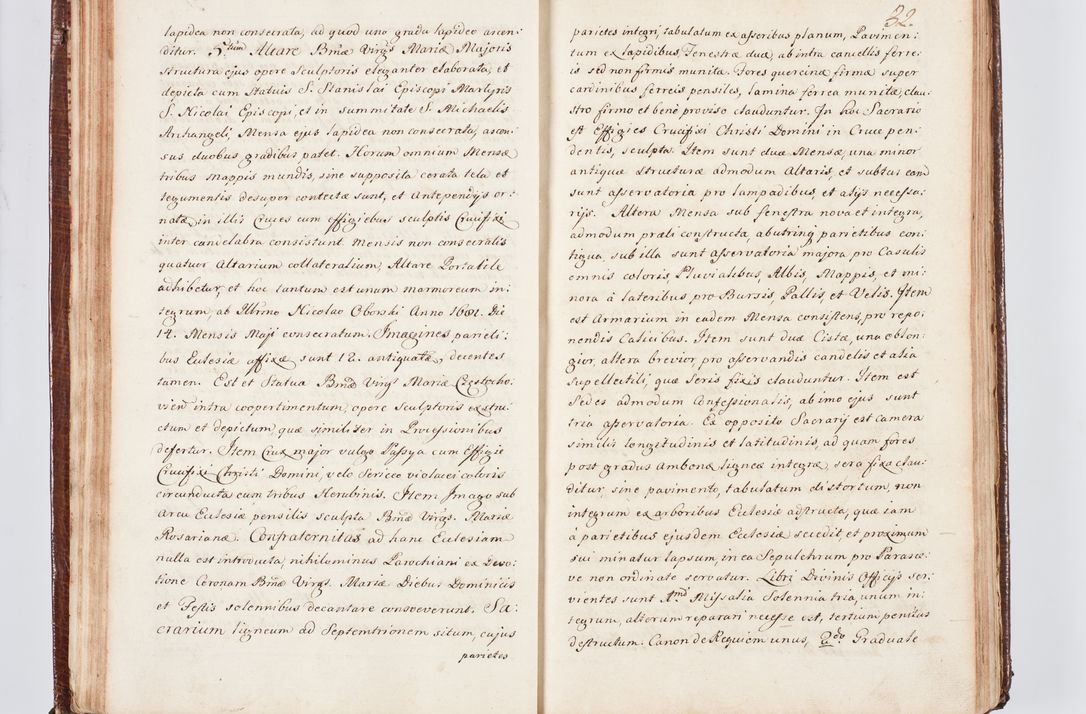 lapidea non consecrata, ad quod uno gradu lapideo ascen:
ditur. 5tum Altare Bmæ Virgs Mariæ Majoris
structura ejus opere Sculptoris eleganter elaborata, et
depicta cum Statuis S. Stanislai Episcopi Martyris
S. Nicolai Episcopi, et in summitate S. Michaelis
Archangeli, Mensa ejus lapidea non consecrata, ascen:
sus duobus gradibus patet. Horum omnium Mensæ
tribus mappis mundis, sine supposita cerata tela et
tegumentis desuper contectæ sunt, et Antependijs or:
natæ, in illis Cruces cum effigiebus sculptis Crucifixi
inter candelabra consistunt. Mensis non consecratis
quatuor Altarium collateralium, Altare Portatile
adhibetur, et hoc tantum est unum marmoreum in:
tegrum, ab Illrimo Nicolao Oborski Anno 1681. Die
14. Mensis Maji consecratum. Imagines parieti:
bus Eclesiæ affixæ sunt 12. antiquatæ, decentes
tamen. Est et Statua Bmæ Virgs Mariæ Częstocho:
vien intra coopertimentum, opere sculptoris exstru:
ctum et depictum, quæ similiter in Processionibus
defertur. Item Crux major vulgo Passya cum Effigie
Crucifixi Christi Domini, velo sericeo violacei coloris
circunducta cum tribus Herubinis. Item Imago sub
Arcu Eclesiæ pensilis sculpta Bmæ Virgs. Mariæ
Rosarianæ. Confraternitas ad hanc Eclesiam
nulla est introducta, nihilominus Parochiani ex Devo:
tione Coronam Bmæ Virgs. Mariæ Diebus Dominicis
et Festis solennibus decantare consveverunt. Sa:
crarium ligneum ad Septemtrionem situm, cujus
parietes
32.
parietes integri, tabulatum ex asseribus planum, Pavimen:
tum ex lapidibus, Fenestræ duæ, ab intra cancellis ferre:
is sed non firmis munitæ. Fores quercinæ firmæ super
cardinibus ferreis pensiles, lamina ferrea munitæ, clau:
stro firmo et bene proviso clauduntur. In hoc Sacrario
est Effigies Crucifixi Christi Domini in Cruce pen:
dentis, sculpta. Item sunt duæ Mensæ, una minor
antiquæ structuræ admodum Altaris, et subtus eam
sunt asservatoria pro lampadibus, et alijs necessa:
rijs. Altera Mensa sub fenestra nova et integra,
admodum præli constructa, ab utrinq parietibus con:
tigua, sub illa sunt asservatoria majora pro Casulis
omnis coloris, Pluvialibus, Albis, Mappis, et mi:
nora à lateribus pro Bursis, Pallis, et Velis. Item
est Armarium in eadem Mensa consistens, pro repo:
nendis Calicibus. Item sunt duæ Cistæ, una oblon:
gior, altera brevior, pro asservandis candelis et alia
supellectili, quæ seris fixis clauduntur. Item est
Sedes admodum Confessionalis, ab imo ejus sunt
tria asservatoria. Ex opposito Sacrarij est camera
similis longitudinis et latitudinis, ad quam fores
post gradus Ambonæ ligneæ integræ, sera fixa clau:
ditur, sine pavimento, tabulatum distortum, non
integrum ex arboribus Eclesiæ adstructa, quæ iam
à parietibus ejusdem Ecclesiæ secedit, et proximum
sui minatur lapsum, in ea Sepulchrum pro Parasce:
ve non ordinate servatur. Libri Divinis Officijs ser:
vientes sunt 1md Missalia Solennia tria, unum in:
tegrum, alterum reparari necesse est, tertium penitus
destructum. Canon de Requiem unus, 2do Graduale